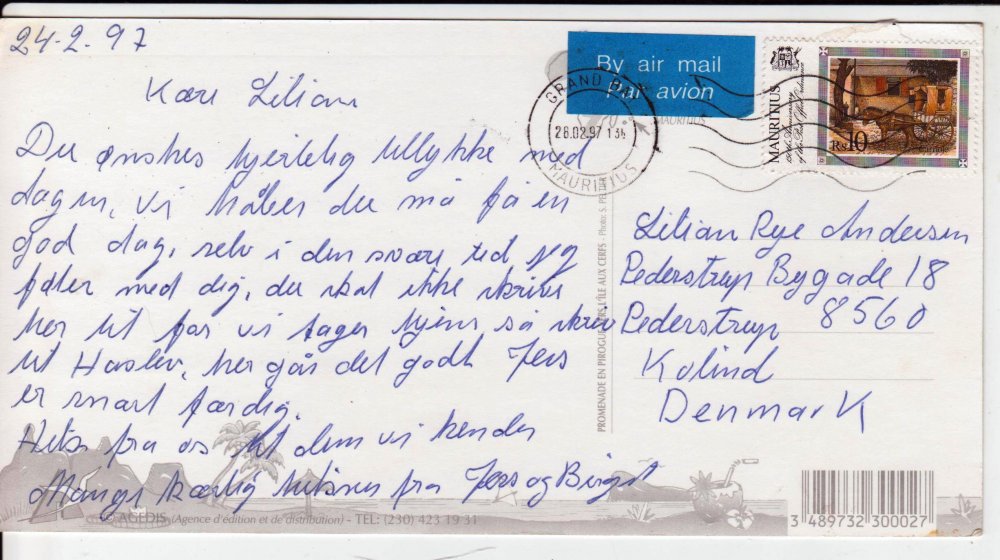 24-2.97
Kære Lilian
Du ønskes hjertelig tillykke med
dagen, vi håber du må få en
god dag, selv i den svære tid jeg
føler med dig, du skal ikke skrive
her til før vi tager hjem så skriv
til Haslev, her går det godt Jens
er snart færdig.
Hils fra os til dem vi kender
Mange kærlig hilsner fra Jens og Birgit
By air mail
Par avion
GRAND BAY
28.02.97
MAURITIUS
MAURITIUS
MAURITIUS
Rs10
Lilian Rye Andersen
Pederstrup Bygade 18
Pederstrup 8560
Kolind
Denmark
PROMENADE EN PIROGUE VERS L'ÎLE AUX CERFS - Photo: S.
© AGEDIS (Agence d'édition et de distribution) - TEL: (230) 423 19 31
3 489732 300027